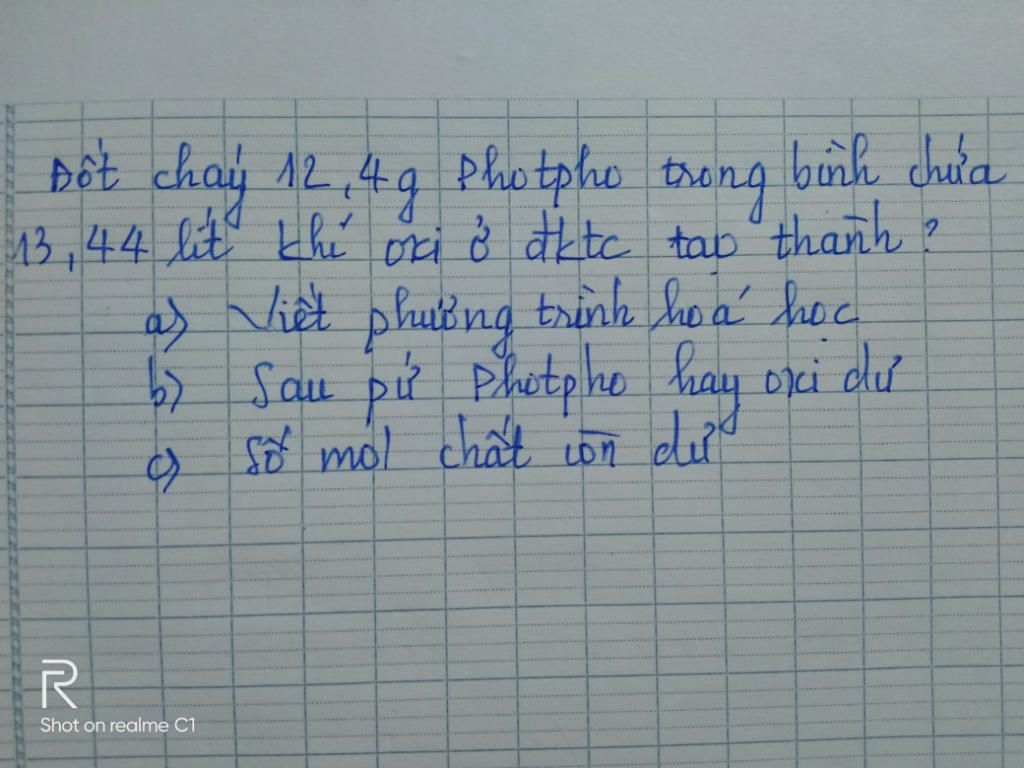 Đốt cháy 12,4g Photpho trong bình chứa
13,44 lít khí oxi ở đktc tạo thành?
a) Viết phương trình hoá học
b) Sau pứ Photpho hay oxi dư
c) Số mol chất còn dư
R
Shot on realme C1